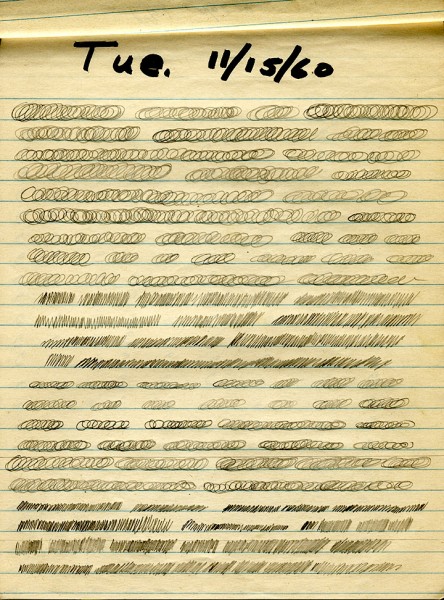 Tue. 11/15/60